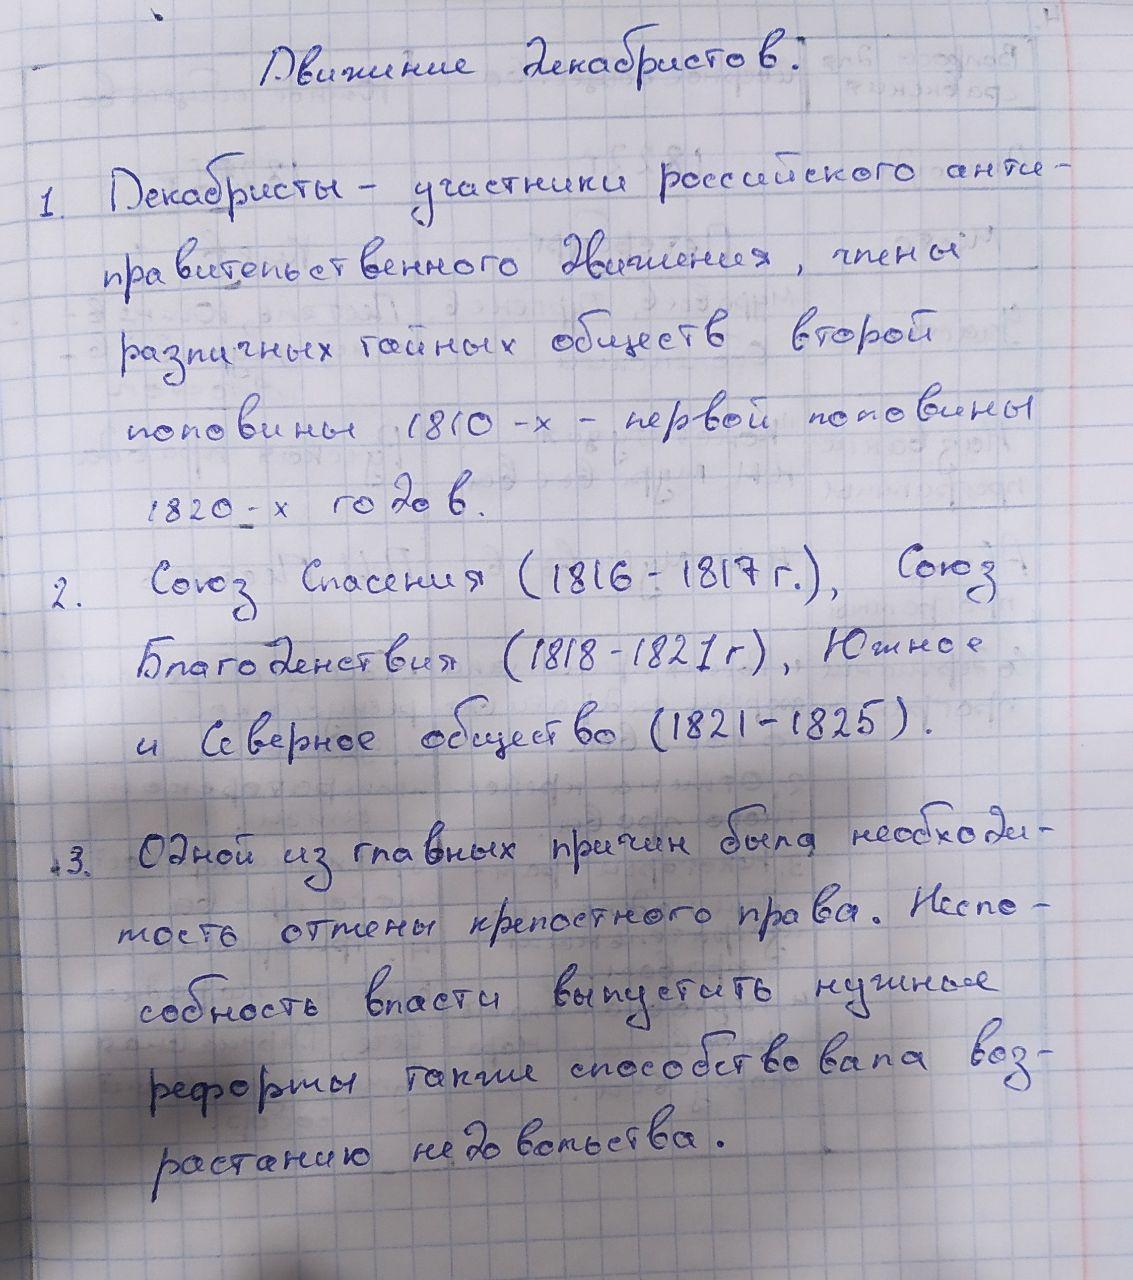 Движение декабристов.
1. Декабристы - участники российского анти-
правительственного движения, члены
различных тайных обществ второй
половины 1810-х - первой половины
1820-х годов.
2. Союз Спасения (1816-1817 г.), Союз
Благоденствия (1818-1821 г.), Южное
и Северное общество (1821-1825).
3. Одной из главных причин была необходи-
мость отмены крепостного права. Неспо-
собность власти выпустить нужные
реформы также способствовала воз-
растанию недовольства.